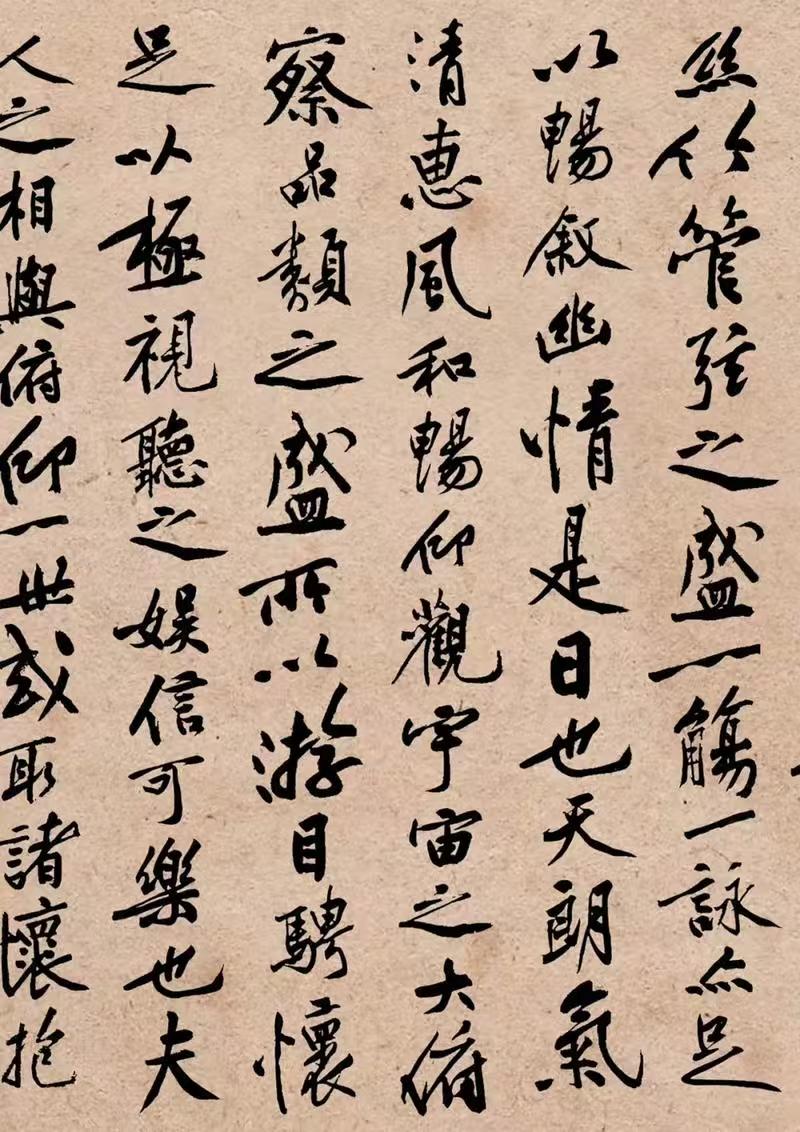 絲竹管弦之盛一觴一詠亦足
以暢敘幽情是日也天朗氣
清惠風和暢仰觀宇宙之大俯
察品類之盛所以游目騁懷
足以極視聽之娛信可樂也夫
人之相與俯仰一世或取諸懷抱